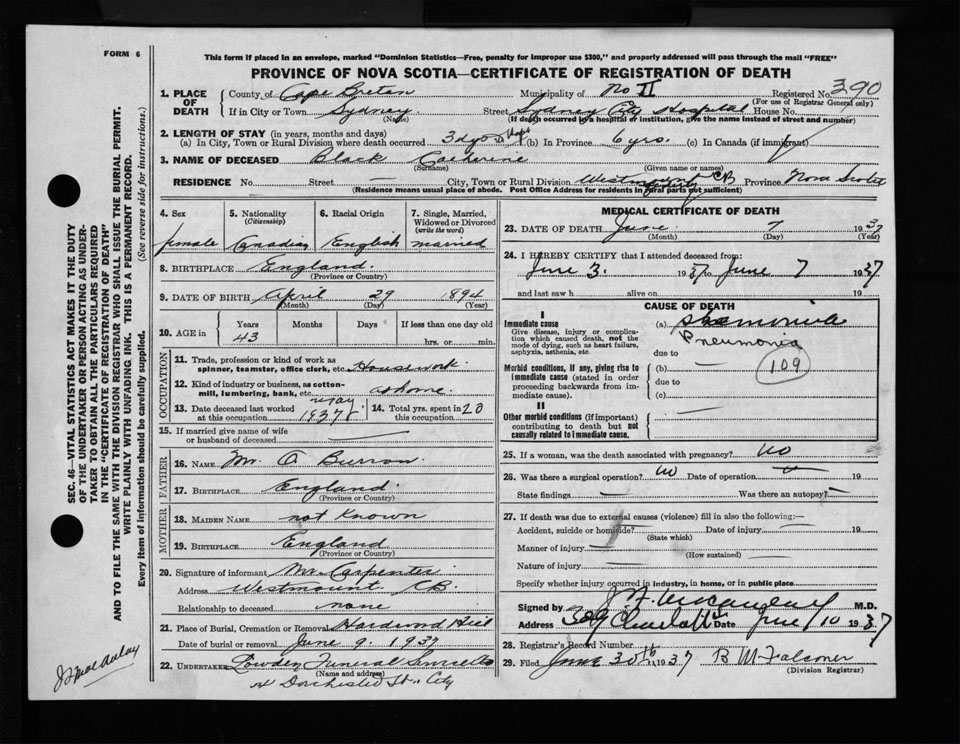 FORM 6
This form if placed in an envelope, marked "Dominion Statistics—Free, penalty for improper use $300," and properly addressed will pass through the mail "FREE"
PROVINCE OF NOVA SCOTIA—CERTIFICATE OF REGISTRATION OF DEATH
1. PLACE OF DEATH
County of Cape Breton Municipality of No II Registered No. 390
(For use of Registrar General only)
If in City or Town Sydney Street Sydney City Hospital House No.
(Name) (If death occurred in a hospital or institution, give the name instead of street and number)
2. LENGTH OF STAY (in years, months and days)
(a) In City, Town or Rural Division where death occurred (b) In Province 6 yrs. (c) In Canada (if immigrant)
3. NAME OF DECEASED Black Catherine
(Surname) (Given name or names)
RESIDENCE No. Street — City, Town or Rural Division Westmount CB Province Nova Scotia
(Residence means usual place of abode. Post Office Address for residents in rural parts not sufficient)
4. Sex female
5. Nationality (Citizenship) Canadian
6. Racial Origin English
7. Single, Married, Widowed or Divorced (write the word) married
8. BIRTHPLACE England
(Province or Country)
9. DATE OF BIRTH April 29 1894
(Month) (Day) (Year)
10. AGE in Years Months Days If less than one day old
43 hrs. or min.
OCCUPATION
11. Trade, profession or kind of work as spinner, teamster, office clerk, etc. Housework
12. Kind of industry or business, as cotton-mill, lumbering, bank, etc. at home
13. Date deceased last worked at this occupation May 1937
14. Total yrs. spent in this occupation 20
15. If married give name of wife or husband of deceased —
FATHER
16. NAME Mr. O Burron
17. BIRTHPLACE England
(Province or Country)
MOTHER
18. MAIDEN NAME not known
19. BIRTHPLACE England
(Province or Country)
20. Signature of informant Mr. Carpenter
Address Westmount CB.
Relationship to deceased none
21. Place of Burial, Cremation or Removal Hardwood Hill
Date of burial or removal June 9. 1937
22. UNDERTAKER Lowden Funeral
(Name and address)
Dorchester St. City
MEDICAL CERTIFICATE OF DEATH
23. DATE OF DEATH June 7 1937
(Month) (Day) (Year)
24. I HEREBY CERTIFY that I attended deceased from:
June 3. 1937 to June 7 1937
and last saw h alive on 19
CAUSE OF DEATH
I
Immediate cause
Give disease, injury or complication which caused death, not the mode of dying, such as heart failure, asphyxia, asthenia, etc.
(a) Pneumonia
due to
Morbid conditions, if any, giving rise to immediate cause (stated in order proceeding backwards from immediate cause).
(b) —
due to
(c)
109
II
Other morbid conditions (if important) contributing to death but not causally related to immediate cause.
25. If a woman, was the death associated with pregnancy? no
26. Was there a surgical operation? no Date of operation —
State findings — Was there an autopsy? —
27. If death was due to external causes (violence) fill in also the following:—
Accident, suicide or homicide? Date of injury — 19
(State which)
Manner of injury —
(How sustained)
Nature of injury —
Specify whether injury occurred in industry, in home, or in public place
Signed by M.D.
Address 309 Charlotte Date June 10 1937
28. Registrar's Record No.
29. Filed June 30th 1937 B M Falconer
(Division Registrar)
SEC. 46—VITAL STATISTICS ACT MAKES IT THE DUTY
OF THE UNDERTAKER OR PERSON ACTING AS UNDER-
TAKER TO OBTAIN ALL THE PARTICULARS REQUIRED
IN THE "CERTIFICATE OF REGISTRATION OF DEATH"
AND TO FILE THE SAME WITH THE DIVISION REGISTRAR WHO SHALL ISSUE THE BURIAL PERMIT.
WRITE PLAINLY WITH UNFADING INK. THIS IS A PERMANENT RECORD.
Every item of information should be carefully supplied. (See reverse side for instructions.)